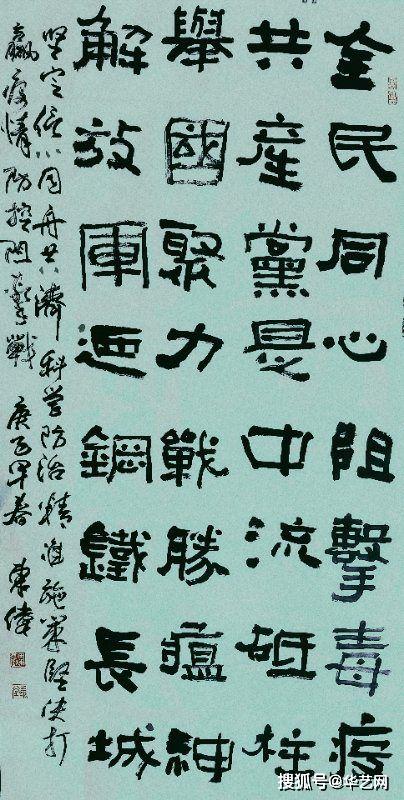 全民同心阻擊毒疫
共產黨是中流砥柱
舉國聚力戰勝瘟神
解放軍迺鋼鐵長城
坚定信心同舟共濟科学防治精准施策坚决打
赢疫情防控阻擊戰 庚子早春 東偉
搜狐号@华艺网